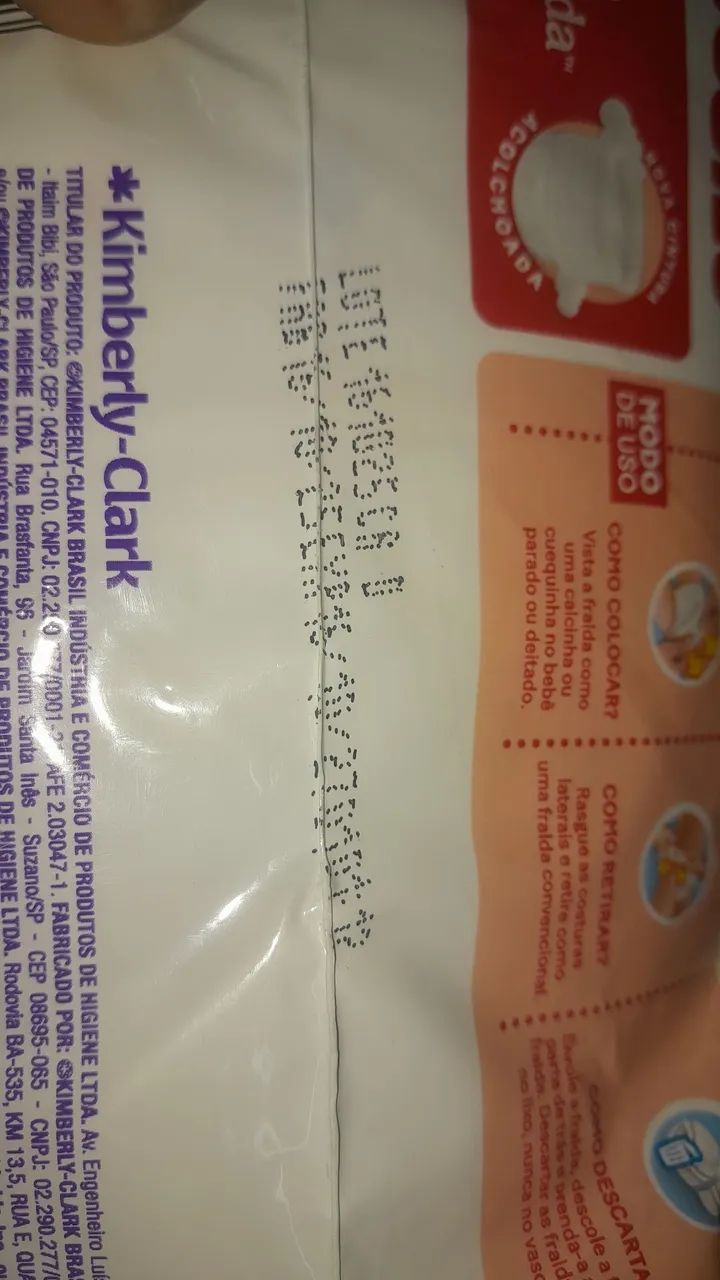 da™
NOVA CINTURA
ACOLCHOADA
MODO
DE USO
COMO COLOCAR?
Vista a fralda como
uma calcinha ou
cuequinha no bebê
parado ou deitado.
COMO RETIRAR?
Rasgue as costuras
laterais e retire como
uma fralda convencional
COMO DESCARTA
Enrole a fralda, descole a
parte de trás e prenda-a
fralda. Descartar as frald
no lixo, nunca no vaso
LOTE
*Kimberly-Clark
TITULAR DO PRODUTO: ©KIMBERLY-CLARK BRASIL INDÚSTRIA E COMÉRCIO DE PRODUTOS DE HIGIENE LTDA. Av. Engenheiro Luí
- Itaim Bibi, São Paulo/SP, CEP: 04571-010. CNPJ: AFE 2.03047-1. FABRICADO POR: ©KIMBERLY-CLARK BRA
DE PRODUTOS DE HIGIENE LTDA. Rua Brasfanta, 96 - Jardim Santa Inês - Suzano/SP - CEP 08695-065 - CNPJ: 02.290.277/0
e/ou ©KIMBERLY-CLARK BRASIL INDÚSTRIA E COMÉRCIO DE PRODUTOS DE HIGIENE LTDA. Rodovia BA-535, KM 13,5, RUA E, QUA